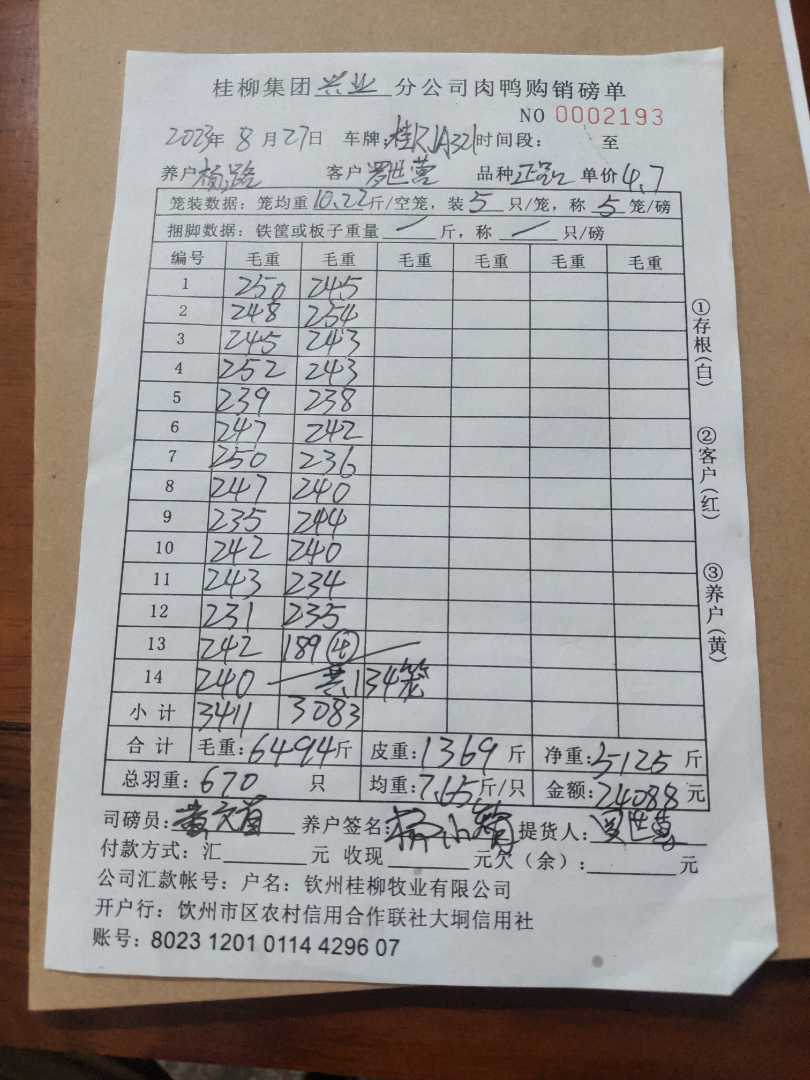 桂柳集团兴业分公司肉鸭购销磅单
NO 0002193
2023年8月27日 车牌:桂RJA321时间段: 至
养户杨路 客户罗世营 品种正品 单价4.7
笼装数据: 笼均重10.22斤/空笼, 装5只/笼, 称5笼/磅
捆脚数据: 铁筐或板子重量/斤, 称/只/磅
编号 毛重 毛重 毛重 毛重 毛重 毛重
1 250 245
2 248 254
3 245 243
4 252 243
5 239 238
6 247 242
7 250 236
8 247 240
9 235 244
10 242 240
11 243 234
12 231 235
13 242 189④
14 240 共134笼
小计 3411 3083
合计 毛重:6494斤 皮重:1369斤 净重:5125斤
总羽重:670只 均重:7.65斤/只 金额:24088元
司磅员: 养户签名: 提货人:罗世营
付款方式: 汇 元 收现 元欠(余): 元
公司汇款帐号: 户名: 钦州桂柳牧业有限公司
开户行: 钦州市区农村信用合作联社大垌信用社
账号: 8023 1201 0114 4296 07
①存根(白)
②客户(红)
③养户(黄)